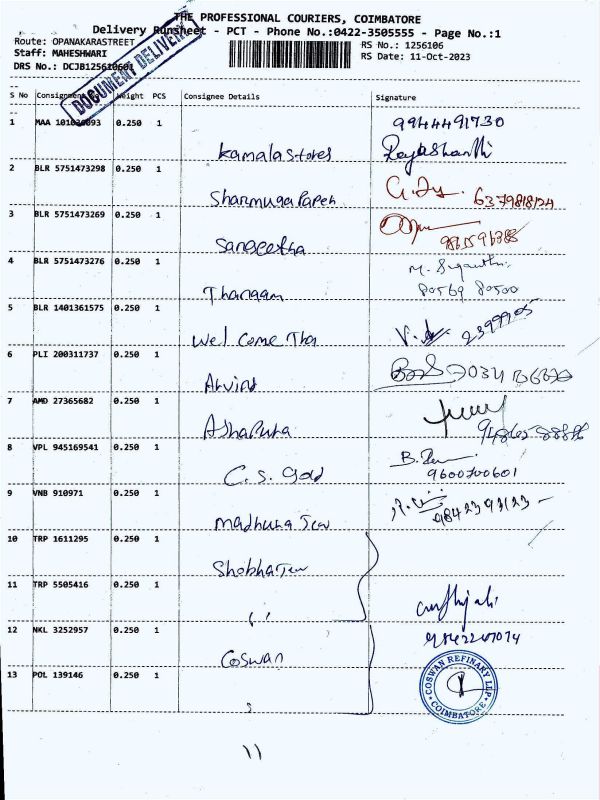 THE PROFESSIONAL COURIERS, COIMBATORE
Delivery Runsheet - PCT - Phone No.:0422-3505555 - Page No.:1
Route: OPANAKARASTREET
RS No.: 1256106
Staff: MAHESHWARI
RS Date: 11-Oct-2023
DRS No.: DCJB125610601
DOCUMENT DELIVERY
S No Consignment No Weight PCS Consignee Details Signature
1 MAA 101030093 0.250 1 9944491730
Kamala stores
2 BLR 5751473298 0.250 1
Sharmuga Papeh 6379818124
3 BLR 5751473269 0.250 1
Sangeetha
4 BLR 5751473276 0.250 1
Thangam 80569 80500
5 BLR 1401361575 0.250 1
Wel Come Tha 2399905
6 PLI 200311737 0.250 1
Arvind
7 AMD 27365682 0.250 1
Ashapura
8 VPL 945169541 0.250 1
C. S. Gold 9600700601
9 VNB 910971 0.250 1
Madhura Jew
10 TRP 1611295 0.250 1
Shobha Jew
11 TRP 5505416 0.250 1
''
12 NKL 3252957 0.250 1
Coswan
13 POL 139146 0.250 1
COSWAN REFINARY LLP
COIMBATORE
11